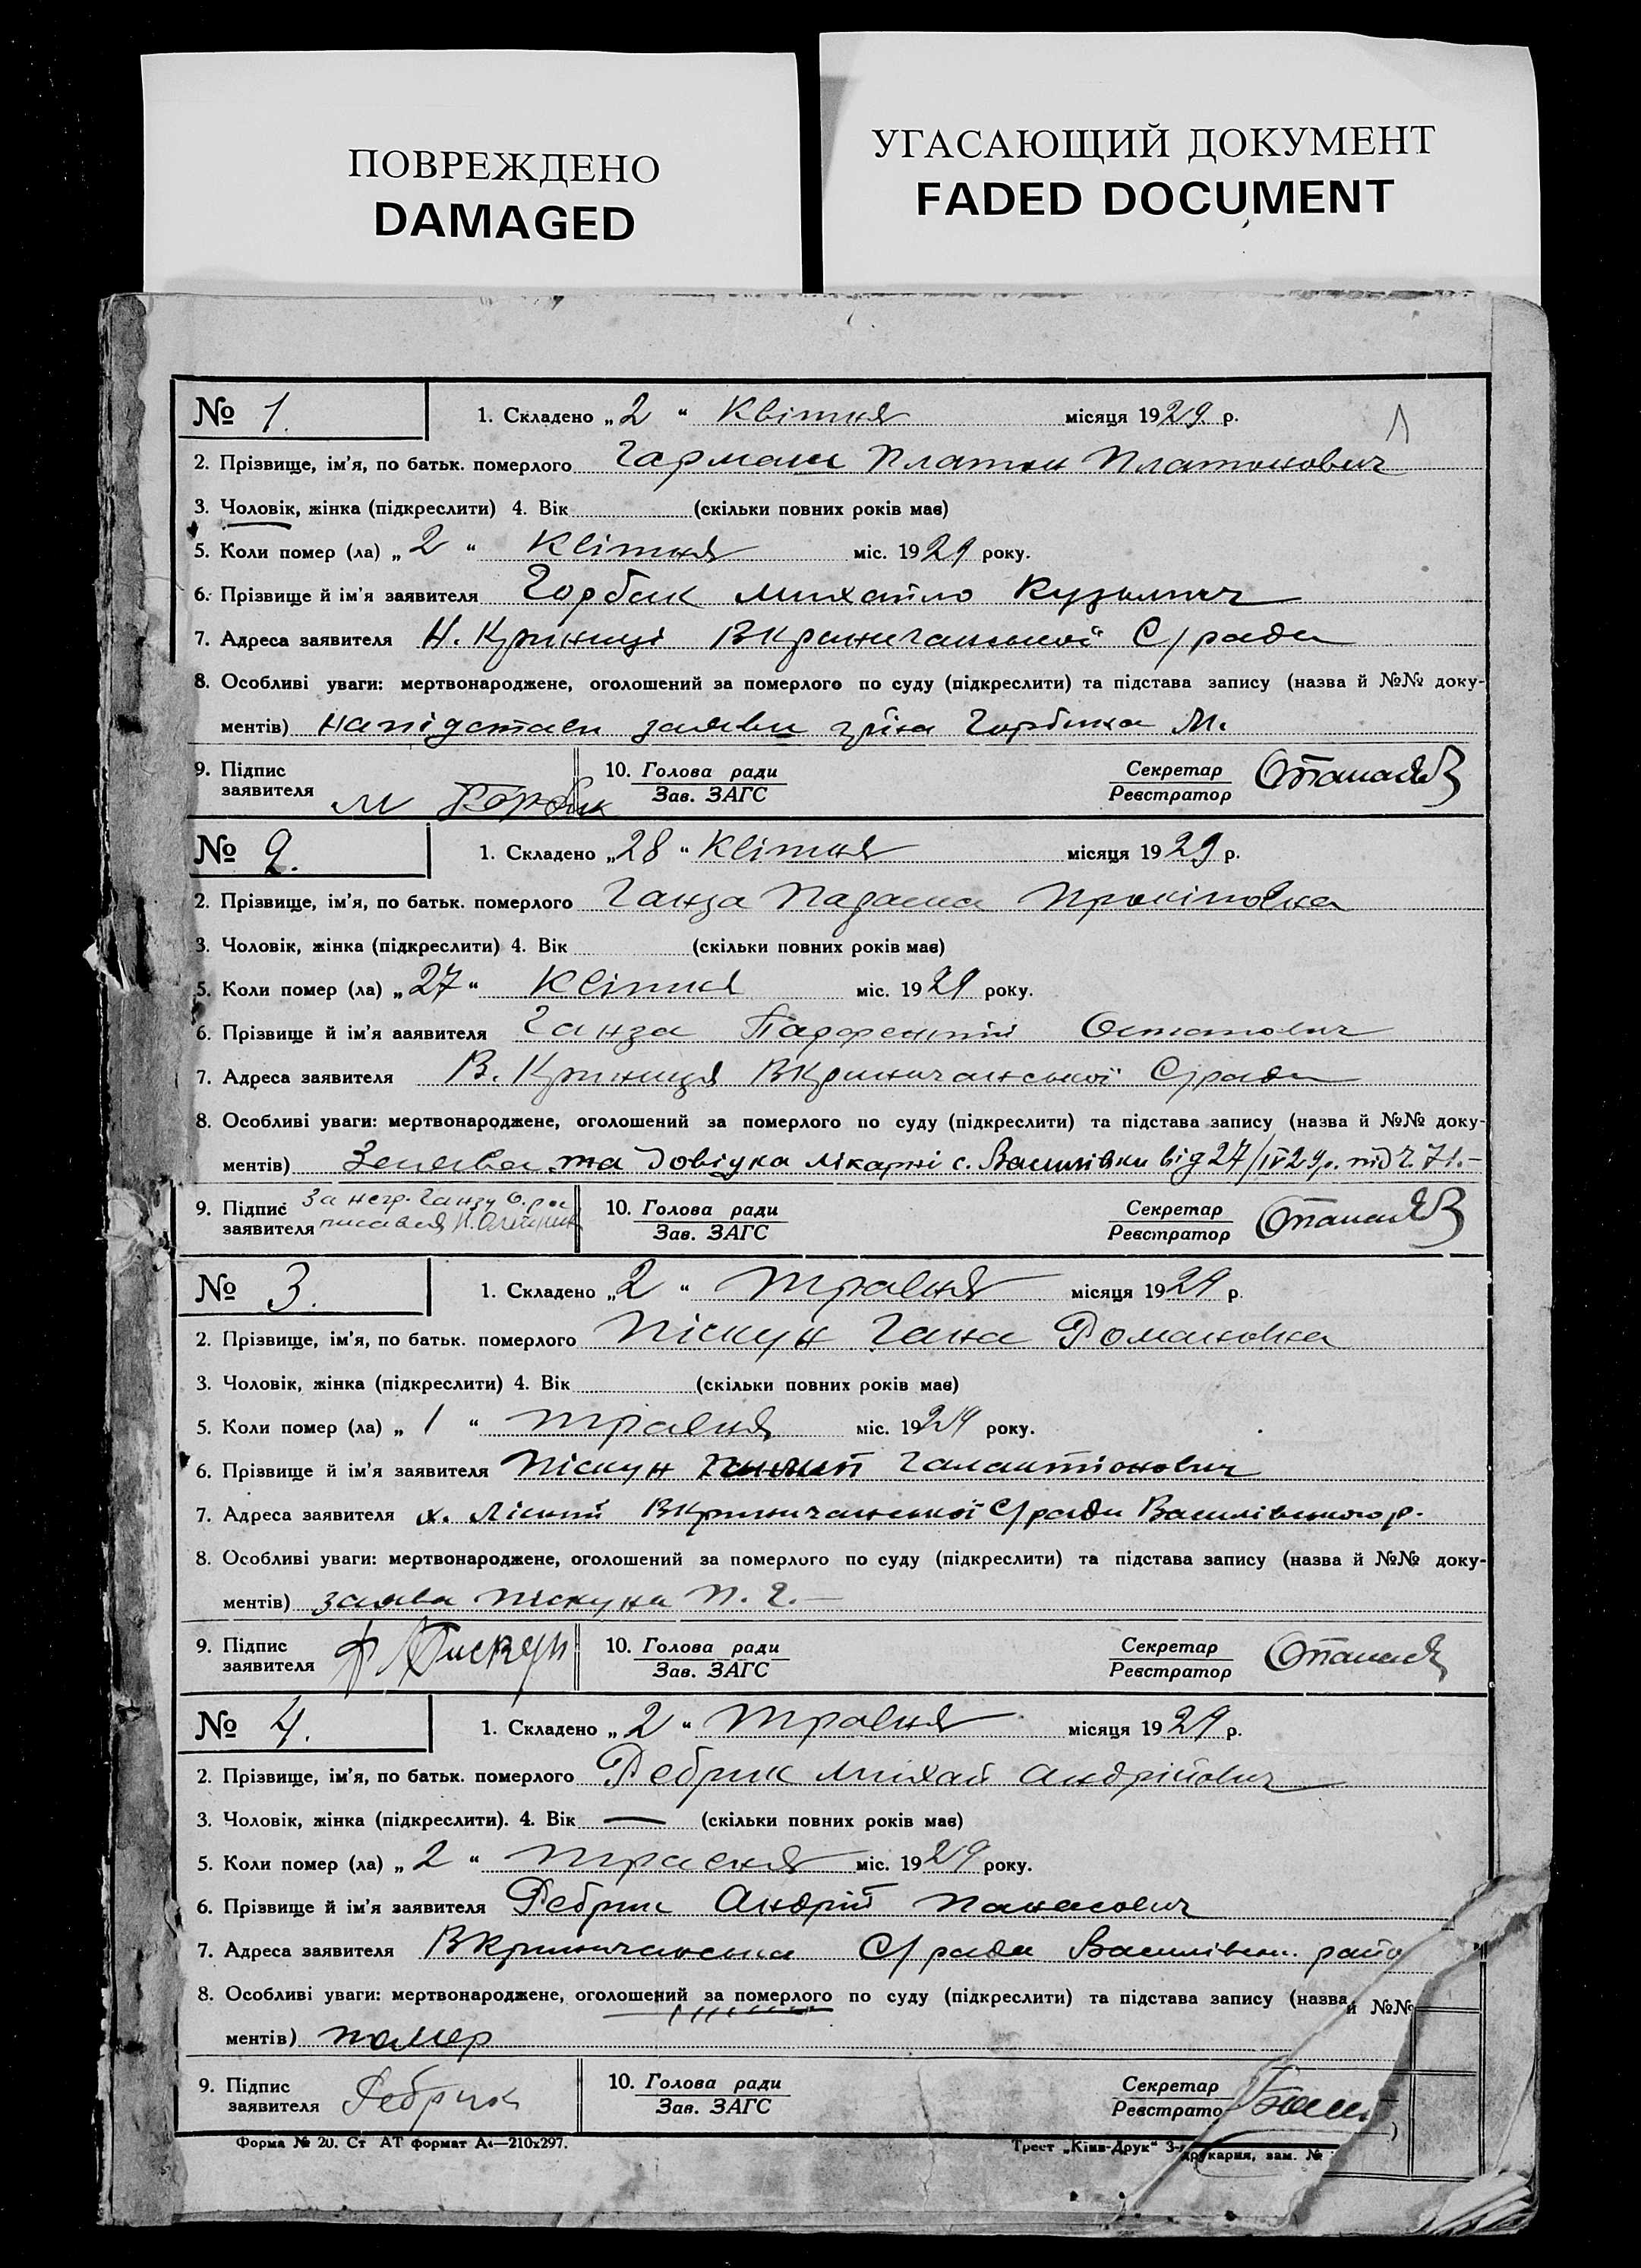 ПОВРЕЖДЕНО
DAMAGED
УГАСАЮЩИЙ ДОКУМЕНТ
FADED DOCUMENT
№ 1. 1. Складено „2“ Квітня місяця 1929 р.
2. Прізвище, ім'я, по батьк. померлого Гармаш Платон Платонович
3. Чоловік, жінка (підкреслити) 4. Вік (скільки повних років має)
5. Коли помер (ла) „2“ Квітня міс. 1929 року.
6. Прізвище й ім'я заявителя Горбик Михайло Кузьмич
7. Адреса заявителя Н. Криниці ВКриничанської С/ради
8. Особливі уваги: мертвонароджене, оголошений за померлого по суду (підкреслити) та підстава запису (назва й №№ доку-
ментів) на підстави заяви гр-на Горбика М.
9. Підпис
заявителя М Горбик
10. Голова ради
Зав. ЗАГС
Секретар
Реєстратор
№ 2. 1. Складено „28“ Квітня місяця 1929 р.
2. Прізвище, ім'я, по батьк. померлого Ганза Параска Прокіповна
3. Чоловік, жінка (підкреслити) 4. Вік (скільки повних років має)
5. Коли помер (ла) „27“ Квітня міс. 1929 року.
6. Прізвище й ім'я заявителя Ганза Парфентій Остапович
7. Адреса заявителя В. Криниця ВКриничанської С/ради
8. Особливі уваги: мертвонароджене, оголошений за померлого по суду (підкреслити) та підстава запису (назва й №№ доку-
ментів) Заява та Довідка лікарні с. Василівки від 27/IV 29 р. під Ч. 71.-
9. Підпис За негр. Ганзу
заявителя
10. Голова ради
Зав. ЗАГС
Секретар
Реєстратор
№ 3. 1. Складено „2“ травня місяця 1929 р.
2. Прізвище, ім'я, по батьк. померлого Піскун Гана Романовна
3. Чоловік, жінка (підкреслити) 4. Вік (скільки повних років має)
5. Коли помер (ла) „1“ травня міс. 1929 року.
6. Прізвище й ім'я заявителя Піскун Галактіонович
7. Адреса заявителя х. Лісний ВКриничанської С/ради Василівського р.
8. Особливі уваги: мертвонароджене, оголошений за померлого по суду (підкреслити) та підстава запису (назва й №№ доку-
ментів) заява Піскуна П. Г. —
9. Підпис
заявителя Пискун
10. Голова ради
Зав. ЗАГС
Секретар
Реєстратор
№ 4. 1. Складено „2“ травня місяця 1929 р.
2. Прізвище, ім'я, по батьк. померлого Ребрик Михай Андрійович
3. Чоловік, жінка (підкреслити). 4. Вік — (скільки повних років має)
5. Коли помер (ла) „2“ травня міс. 1929 року.
6. Прізвище й ім'я заявителя Ребрик Андрій Панасович
7. Адреса заявителя ВКриничанська С/рада Василівськ. райо
8. Особливі уваги: мертвонароджене, оголошений за померлого по суду (підкреслити) та підстава запису (назва й №№
ментів) помер
9. Підпис
заявителя Ребрик
10. Голова ради
Зав. ЗАГС
Секретар
Реєстрато
Форма № 20. Ст АТ формат А4—210х297.
Трест „Київ-Друк“ 3-
друкарня, зам. №